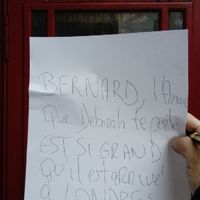 BERNARD, l'Amour
Que Deborah te porte
EST SI GRAND
qu'il est arrivé
à LONDRES